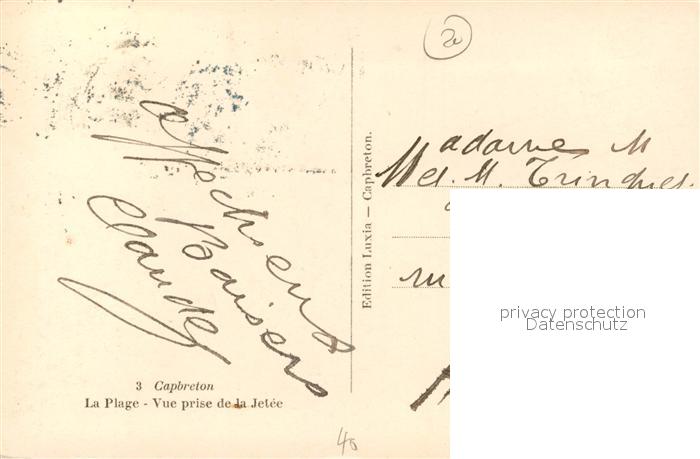 affectueux
Baisers
Claude
3 Capbreton
La Plage - Vue prise de la Jetée
Edition Luxia — Capbreton.
Madame M
et M.
privacy protection
Datenschutz
40